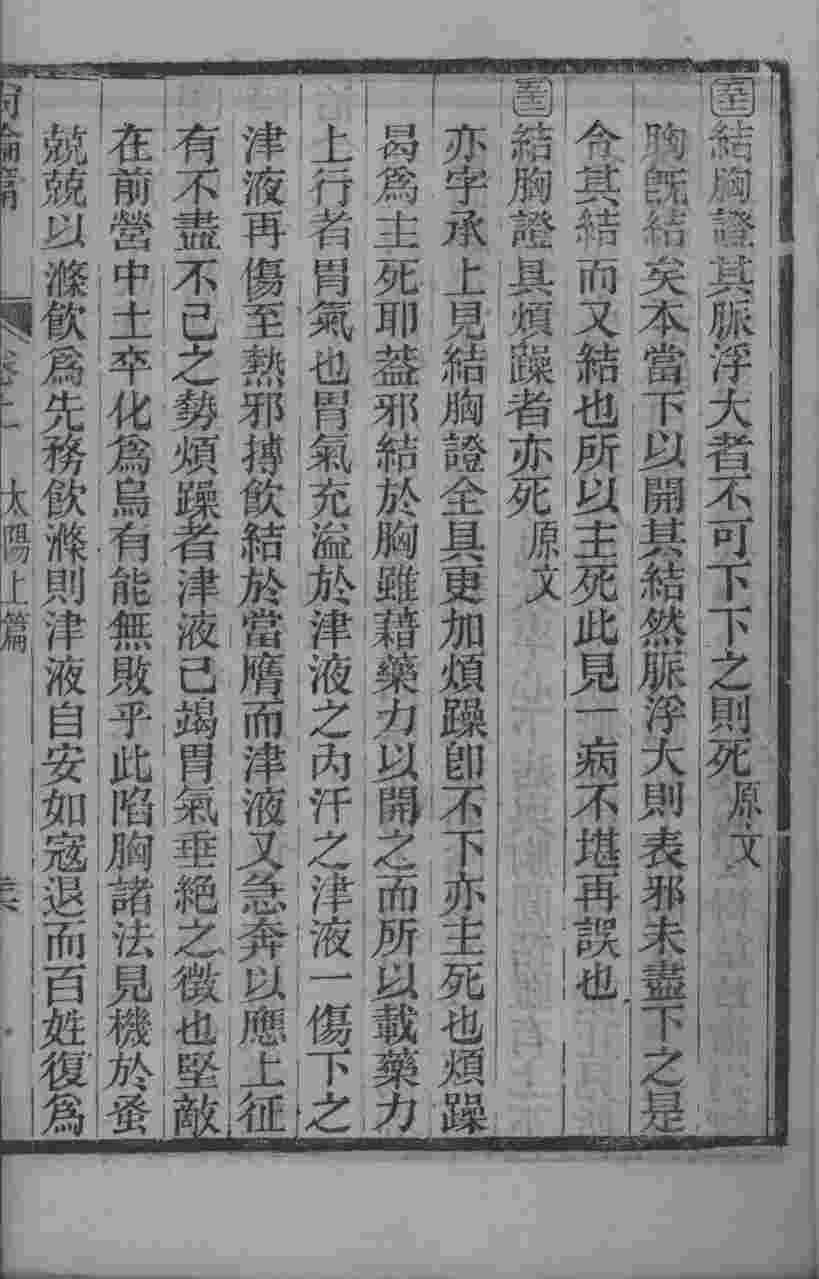 結胸證其脈浮大者不可下下之則死原文
胸旣結矣本當下以開其結然脈浮大則表邪未盡下之是
令其結而又結也所以主死此見一病不堪再誤也
結胸證具煩躁者亦死原文
亦字承上見結胸證全具更加煩躁卽不下亦主死也煩躁
曷爲主死耶葢邪結於胸雖藉藥力以開之而所以載藥力
上行者胃氣也胃氣充溢於津液之內汗之津液一傷下之
津液再傷至熱邪搏飮結於當膺而津液又急奔以應上征
有不盡不已之勢煩躁者津液已竭胃氣垂絕之徵也堅敵
在前營中士卒化爲烏有能無敗乎此陷胸諸法見機於蚤
兢兢以滌飮爲先務飮滌則津液自安如寇退而百姓復爲
論篇 卷上 太陽上篇